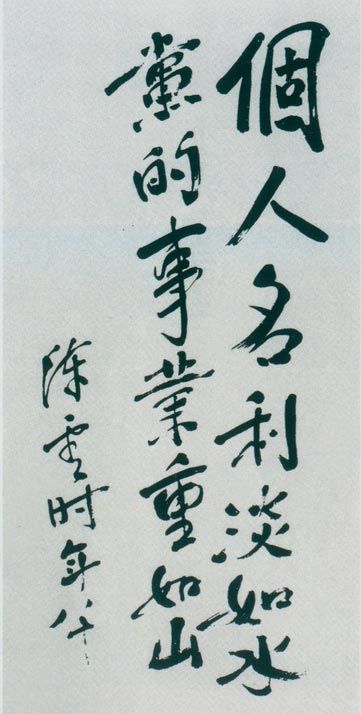 個人名利淡如水
黨的事業重如山
陳雲时年八十